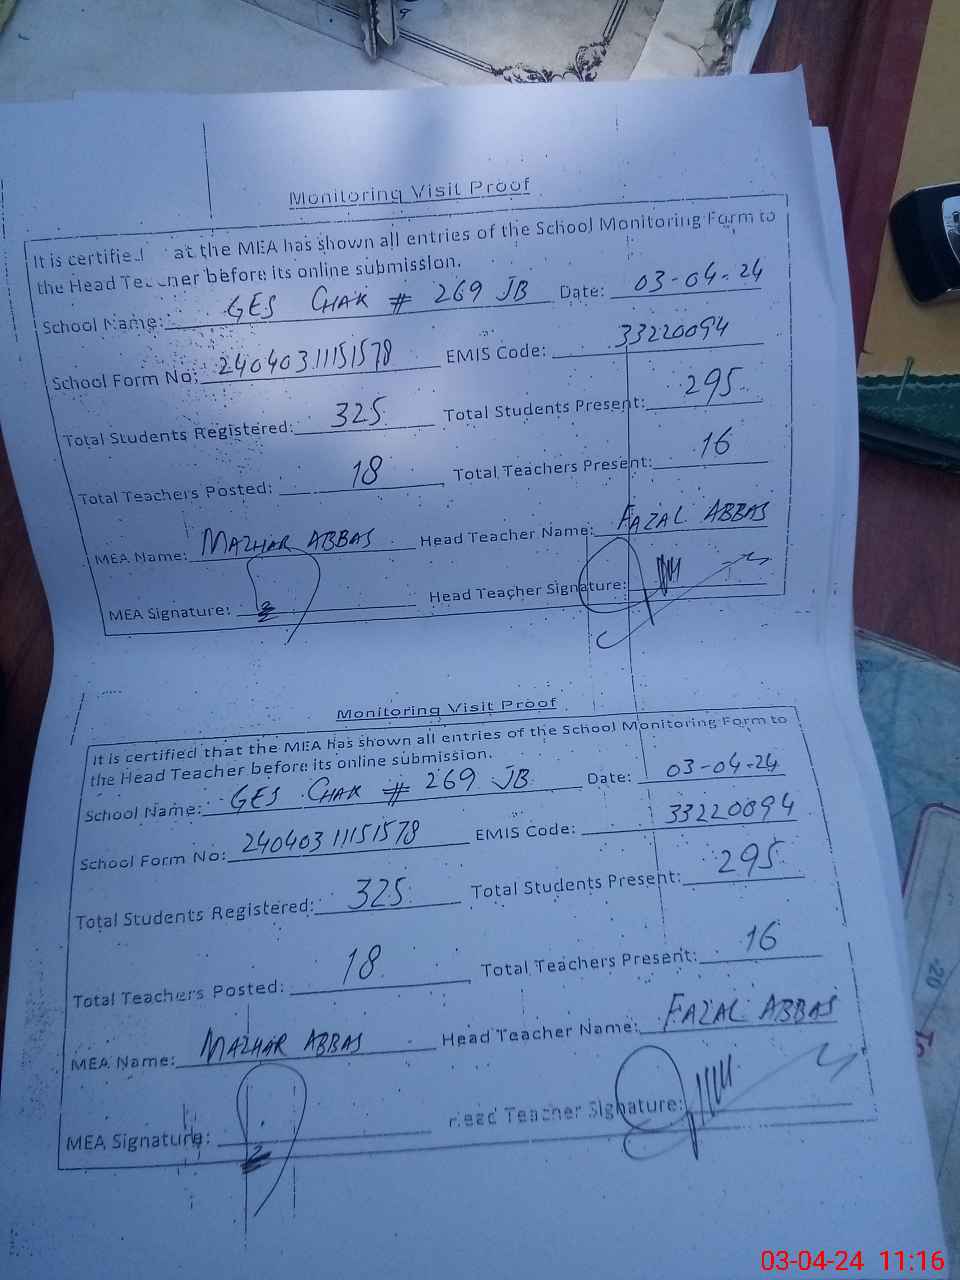 Monitoring Visit Proof
It is certified at the MEA has shown all entries of the School Monitoring Form to
the Head Teacher before its online submission.
School Name: GES CHAK # 269 JB Date: 03-04-24
School Form No: 24040311151578 EMIS Code: 33220094
Total Students Registered: 325 Total Students Present: 295
Total Teachers Posted: 18 Total Teachers Present: 16
MEA Name: MAZHAR ABBAS Head Teacher Name: FAZAL ABBAS
MEA Signature: Head Teacher Signature:
Monitoring Visit Proof
It is certified that the MEA has shown all entries of the School Monitoring Form to
the Head Teacher before its online submission.
School Name: GES CHAK # 269 JB Date: 03-04-24
School Form No: 24040311151578 EMIS Code: 33220094
Total Students Registered: 325 Total Students Present: 295
Total Teachers Posted: 18 Total Teachers Present: 16
MEA Name: MAZHAR ABBAS Head Teacher Name: FAZAL ABBAS
MEA Signature: Head Teacher Signature:
-20
03-04-24 11:16